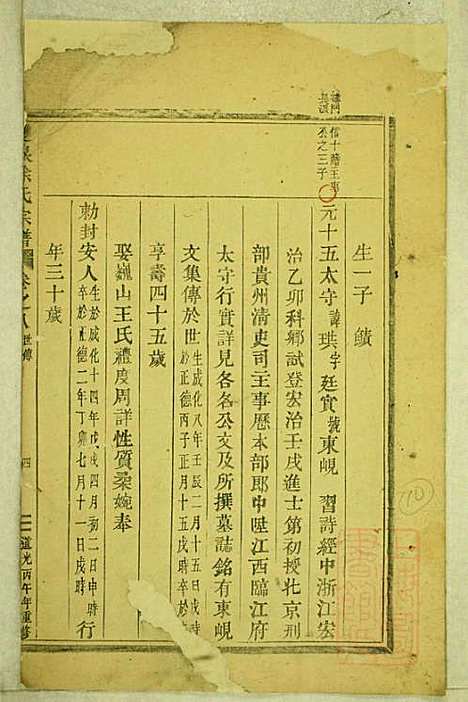 生一子 鐀
信十膳王專
丞之三子
元十五太守諱珙字廷實號東峴 習詩經中浙江宏
治乙卯科鄉試登宏治壬戌進士第初授北京刑
部貴州清吏司主事歷本部郎中陞江西臨江府
太守行實詳見各各公文及所撰墓誌銘有東峴
文集傳於世生成化八年壬辰二月十五日戌時
卒於正德丙子正月十五戌時
享壽四十五歲
娶巍山王氏禮度周詳性質柔婉奉
勅封安人生於成化十四年戊戌四月初二日申時
卒於正德二年丁卯七月十一日戌時
行
年三十歲
徐氏宗譜 卷之八 世傳 四 道光丙午年重修